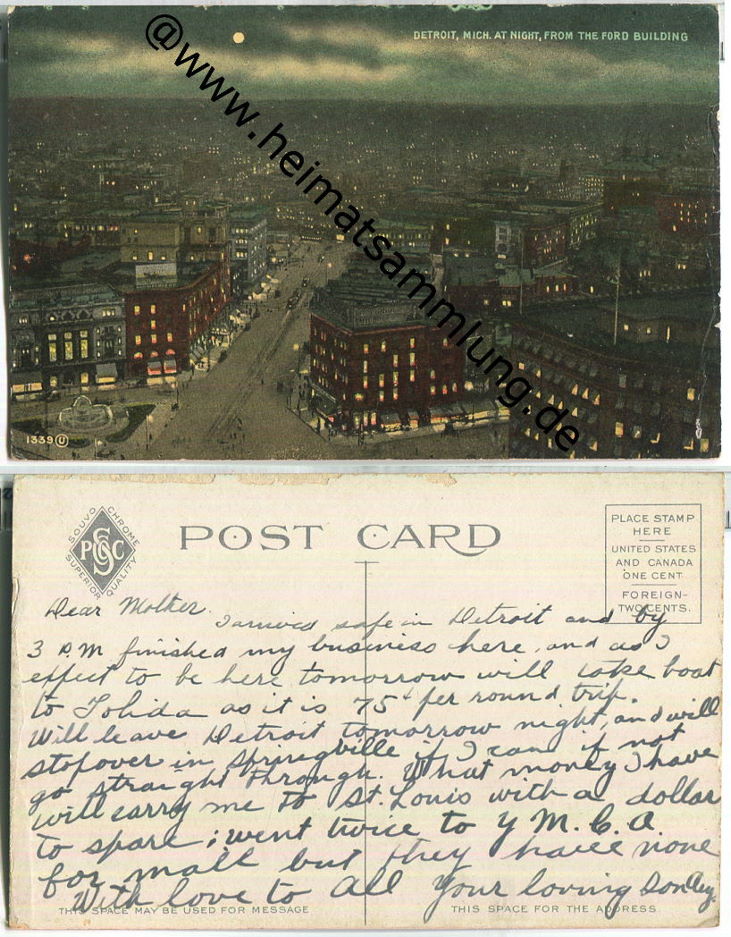 DETROIT, MICH. AT NIGHT, FROM THE FORD BUILDING
@www.heimatsammlung.de
1339 U
SOUVO CHROME
PSCC
SUPERIOR QUALITY
POST CARD
PLACE STAMP
HERE
UNITED STATES
AND CANADA
ONE CENT
FOREIGN-
TWO CENTS.
Dear Mother.
I arrived safe in Detroit and by
3 P.M finished my business here, and as I
expect to be here tomorrow will take boat
to Tolida as it is 75¢ per round trip.
Will leave Detroit tomorrow night, and will
stopover in Springville if I can if not
go straight through. What money I have
will carry me to St. Louis with a dollar
to spare; went twice to Y M. C. A.
for mail but they have none
With love to all Your loving Son
THIS SPACE MAY BE USED FOR MESSAGE
THIS SPACE FOR THE ADDRESS.